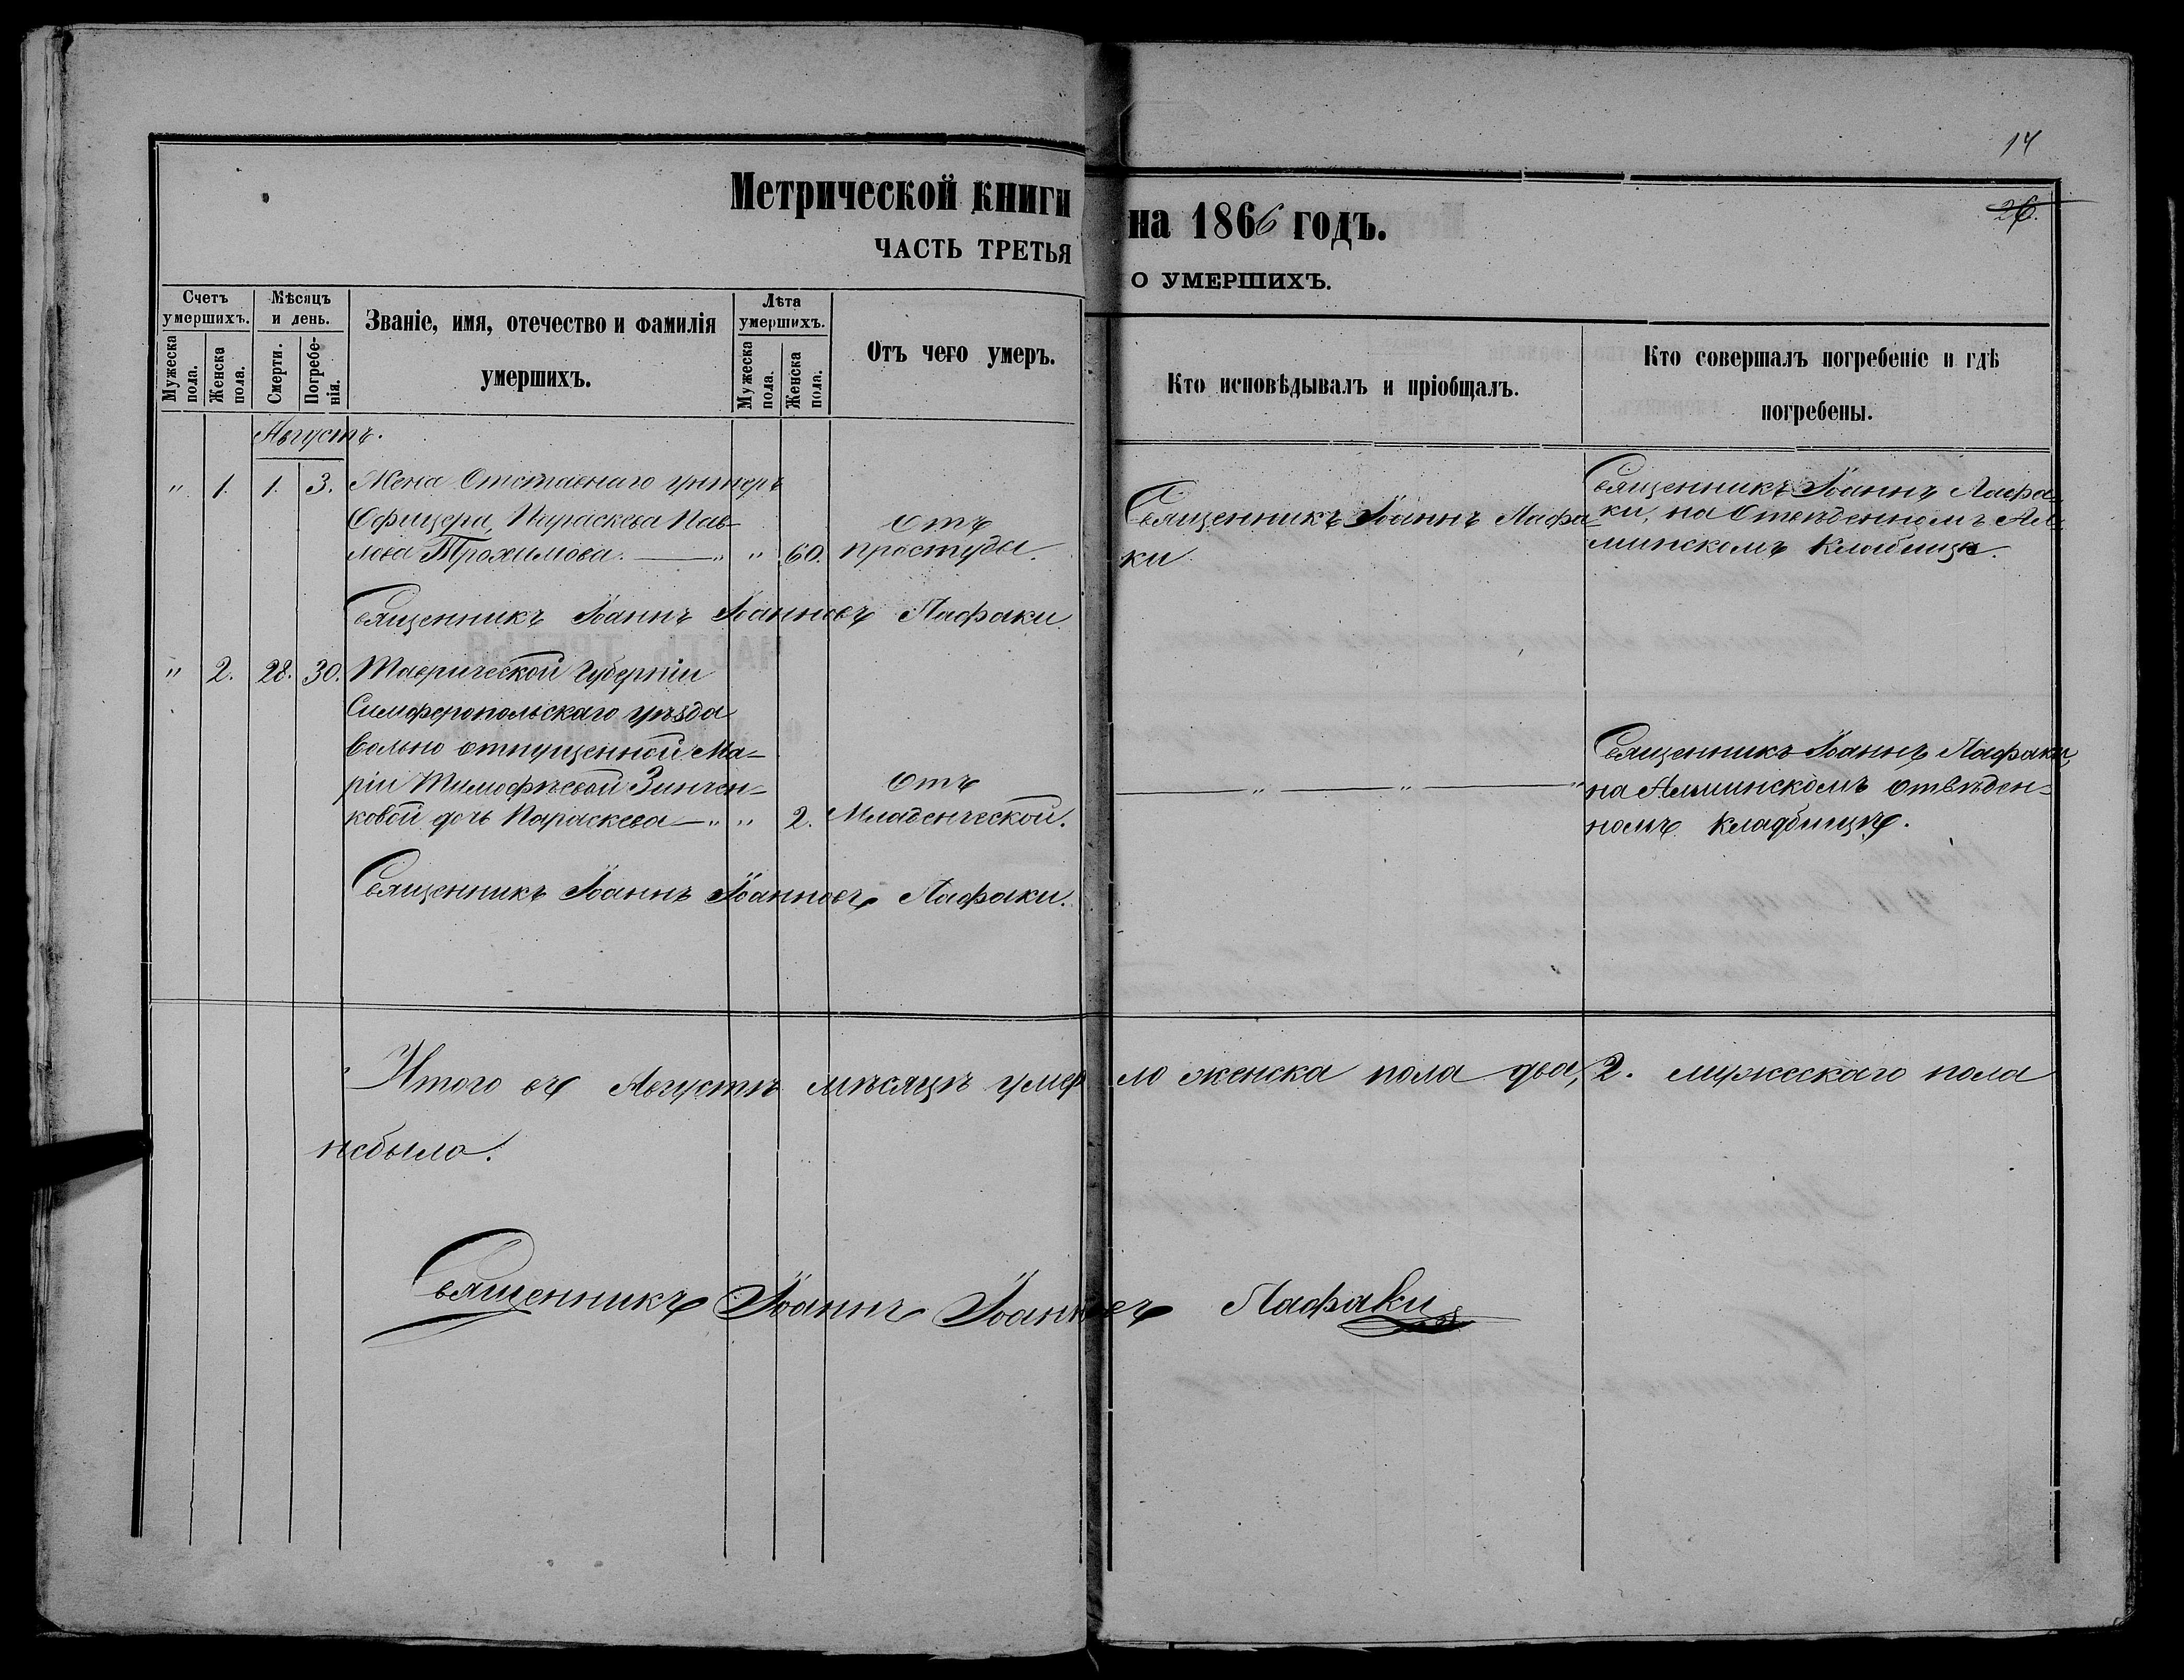 14
26.
Метрической книги на 1866 годъ.
ЧАСТЬ ТРЕТЬЯ О УМЕРШИХЪ.
Счетъ умершихъ.
Мужеска пола.
Женска пола.
Мѣсяцъ и день.
Смерти.
Погребенія.
Званіе, имя, отечество и фамилія
умершихъ.
Лѣта умершихъ.
Мужеска пола.
Женска пола.
Отъ чего умеръ.
Кто исповѣдывалъ и пріобщалъ.
Кто совершалъ погребеніе и гдѣ
погребены.
Августъ.
" 1. 1. 3. Жена Отставнаго унтеръ
Офицера Параскева Пав-
лова Трохимова. " " 60.
Отъ
простуды.
Священникъ Іоаннъ Лафа-
ки
Священникъ Іоаннъ Лафа-
ки, на Отвѣденномъ Ал-
минскомъ Кладбищѣ.
Священникъ Іоаннъ Іоанновъ Лафаки
" 2. 28. 30. Таврической Губерніи
Симферопольскаго уѣзда
Вольно отпущенной Ма-
ріи Тимофѣевой Зинчен-
ковой дочь Параскева " " 2.
Отъ
Младенческой.
" " "
Священникъ Іоаннъ Лафаки,
на Алминскомъ отвѣден-
номъ кладбищѣ.
Священникъ Іоаннъ Іоанновъ Лафаки.
Итого въ Августѣ мѣсяцѣ умерло женска пола два, 2. мужескаго пола
небыло.
Священникъ Іоаннъ Іоанновъ Лафаки